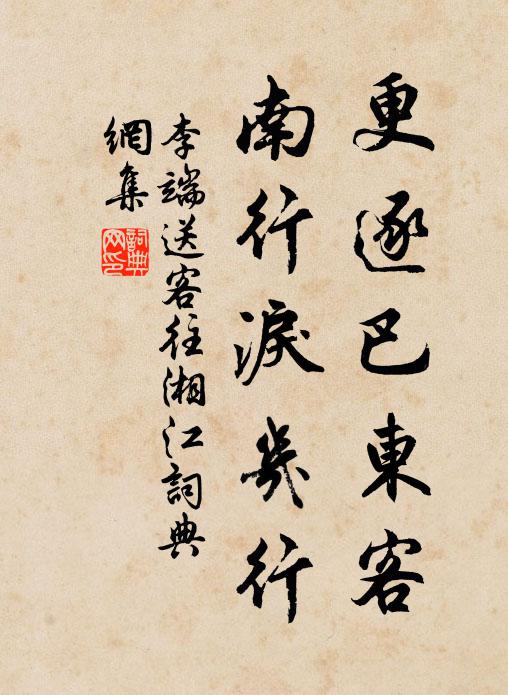 更逐巴東客
南行淚幾行
李端送客往湘江詞典
網集
詞典
网印